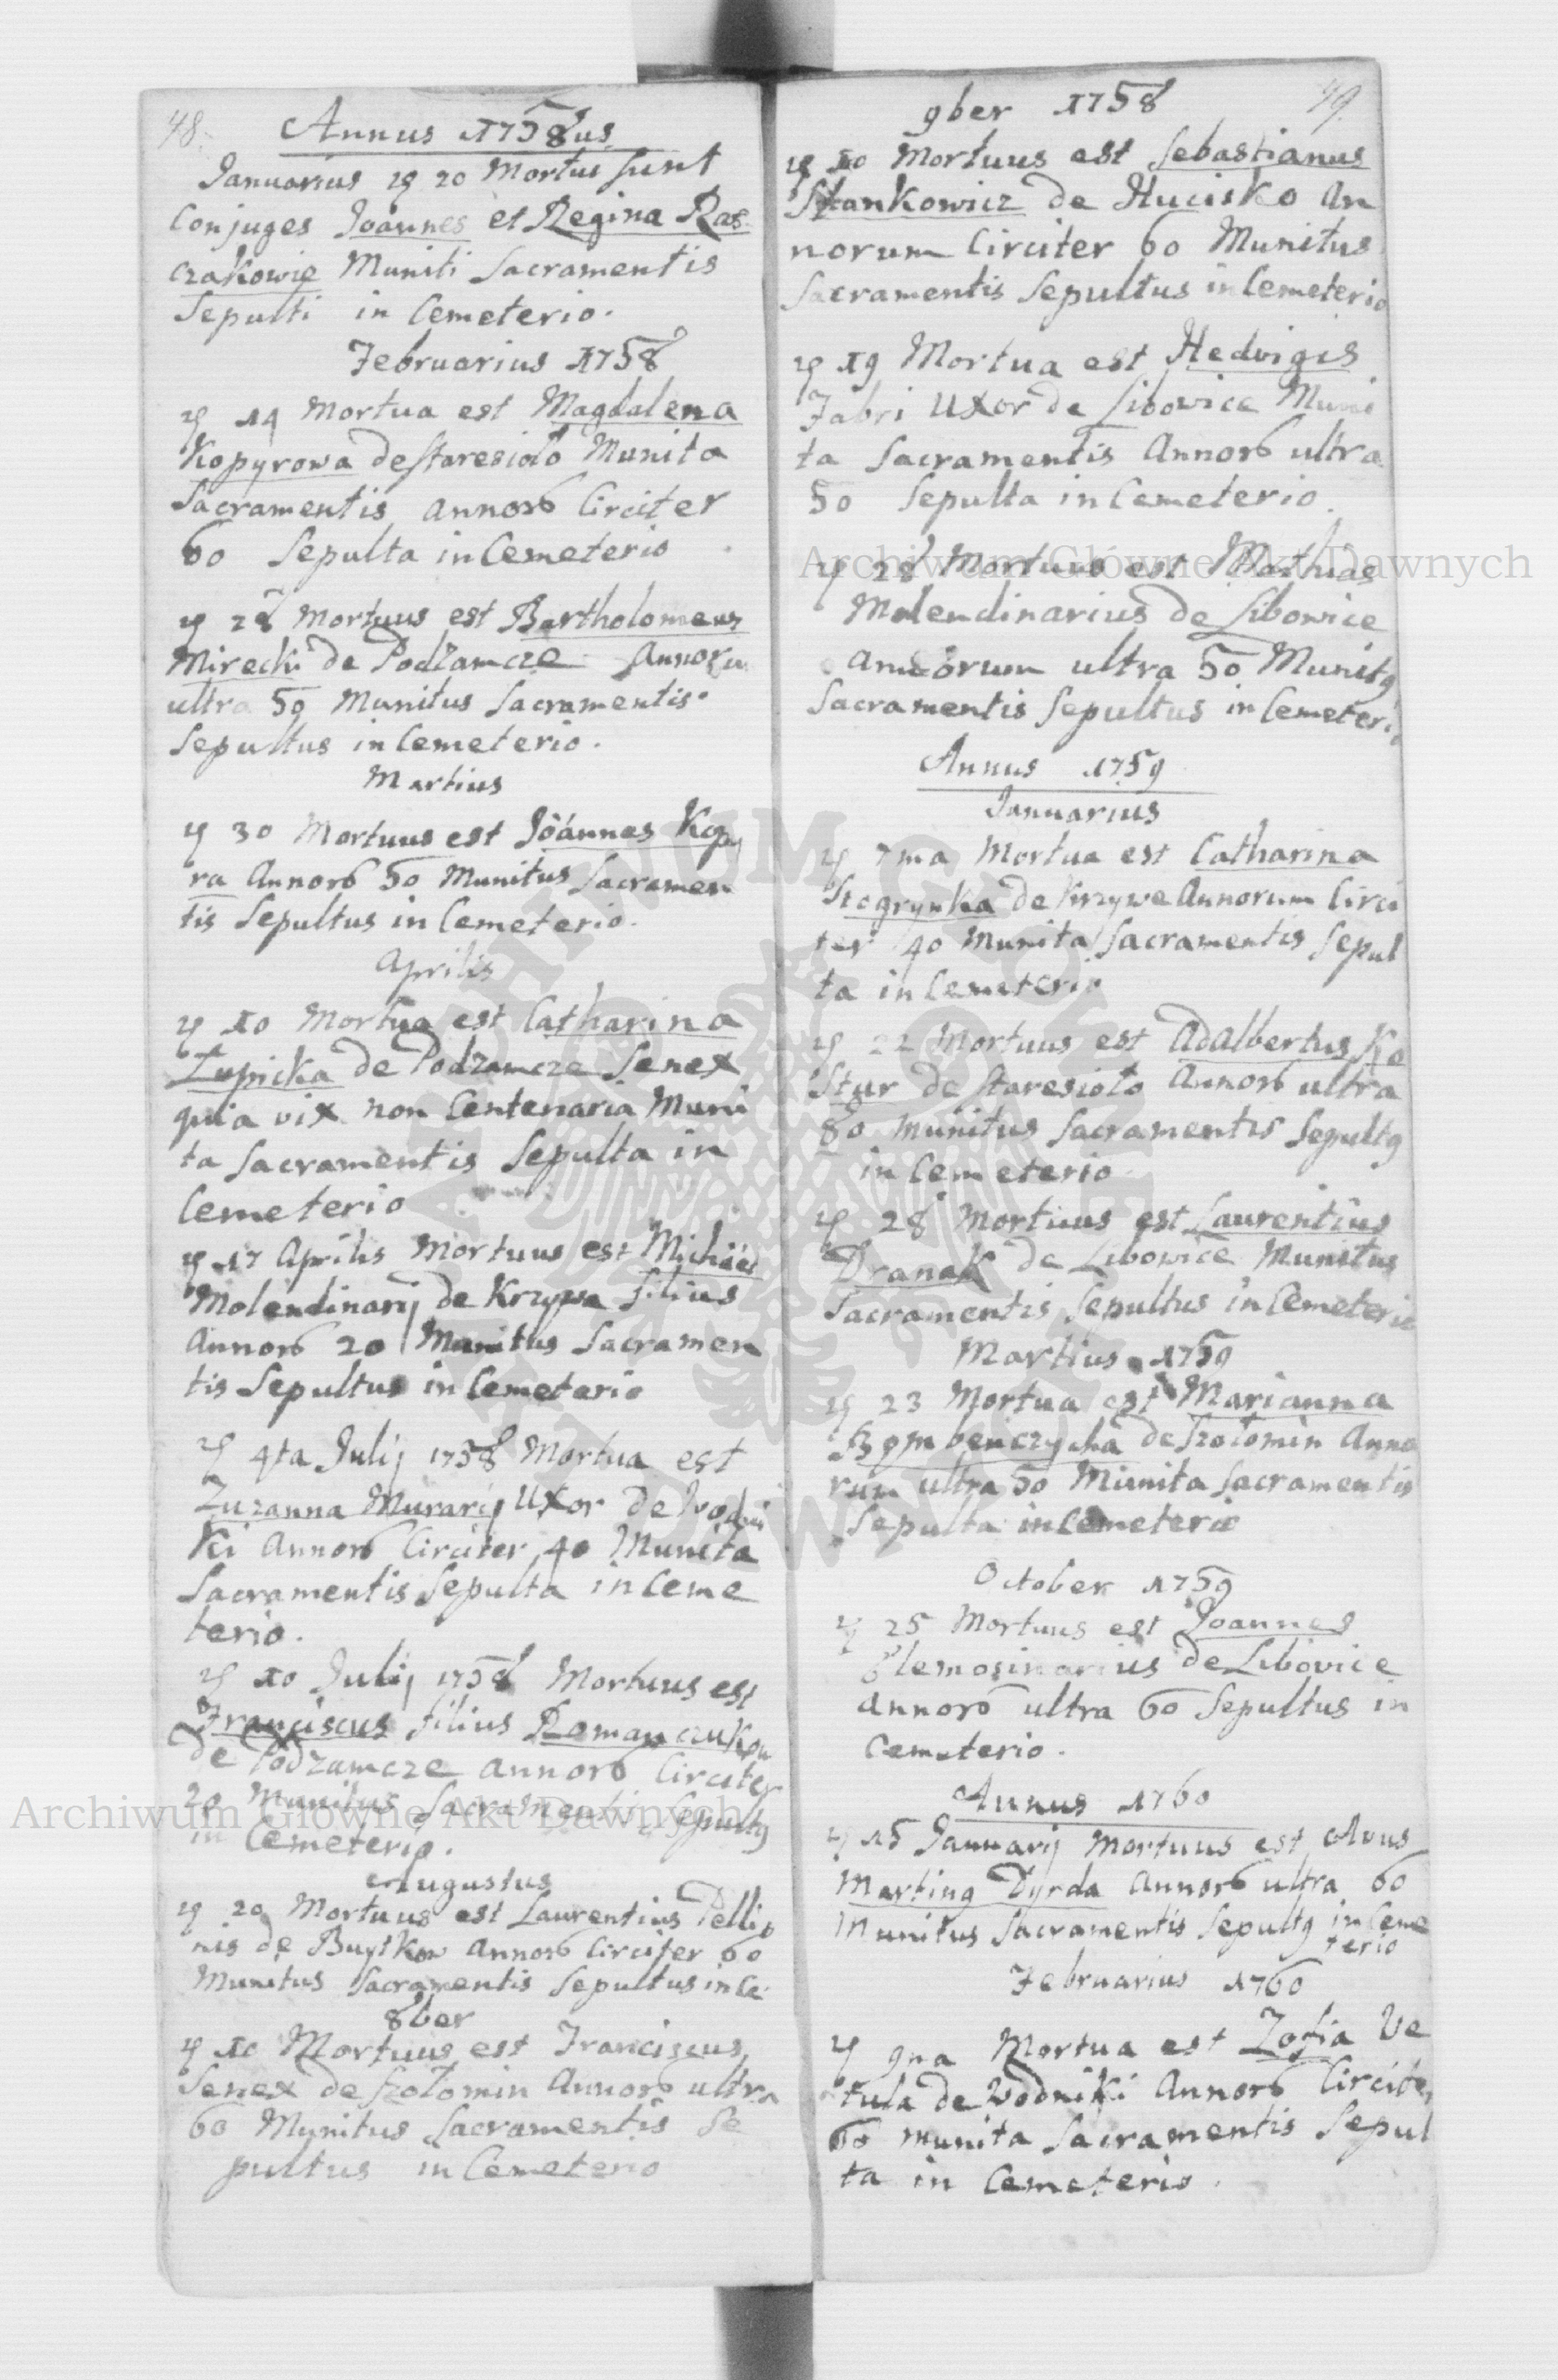 48.
Annus 1758us
Januarius 19 20 Mortui sunt
Conjuges Joannes et Regina Ras
czakowie Muniti Sacramentis
Sepulti in Cemeterio.
Februarius 1758
19 Mortua est Magdalena
Kopyrowa de staresioło Munita
Sacramentis annorb Circiter
60 Sepulta in Cemeterio
28 Mortuus est Bartholomeus
Mirecki de Podzamcze Annoru
ultra 50 Munitus Sacramentis
Sepultus in Cemeterio.
Martius
30 Mortuus est Joannes Kopy
ra Annorb 50 Munitus Sacramen
tis Sepultus in Cemeterio.
Aprilis
10 Mortua est Catharina
Zupicka de Podzamcze Senex
quia vix non Centenaria Muni
ta Sacramentis Sepulta in
Cemeterio
17 Aprilis Mortuus est Michael
Molendinarij de Krzywe filius
Annorb 20 Munitus Sacramen
tis Sepultus in Cemeterio
4ta Julij 1758 Mortua est
Zuzanna Murarij Uxor de Wodni
ki Annorb Circiter 40 Munita
Sacramentis Sepulta in Ceme
terio.
10 Julij 1758 Mortuus est
Franciscus filius Romanczukow
de Podzamcze annorb Circiter
20 Munitus Sacramentis Sepultg
in Cemeterio.
Augustus
20 Mortuus est Laurentius Pellio
nis de Buytkow Annorb Circiter 60
Munitus Sacramentis Sepultus in Ce
8ber
10 Mortuus est Franciscus
Senex de Szołomin Annorb ultra
60 Munitus Sacramentis Se
pultus in Cemeterio
49.
9ber 1758
10 Mortuus est Sebastianus
Stankowicz de Hucisko An
norum Circiter 60 Munitus
Sacramentis Sepultus in Cemeterio
19 Mortua est Hedvigis
Fabri Uxor de Libowice Muni
ta Sacramentis Annorb ultra
50 Sepulta in Cemeterio.
28 Mortuus est Mathias
Molendinarius de Libowice
annorum ultra 50 Munitg
Sacramentis Sepultus in Cemeterio
Annus 1759
Januarius
7ma Mortua est Catharina
de Krzywe Annorum Circi
ter 40 Munita Sacramentis Sepul
ta in Cemeterio
22 Mortuus est Adalbertus Ko
stur de staresioło Annorb ultra
80 Munitus Sacramentis Sepultg
in Cemeterio
28 Mortuus est Laurentius
Dranak de Libowice Munitus
Sacramentis Sepultus in Cemeterio
Martius 1759
23 Mortua est Marianna
de Szołomin Anno
rum ultra 50 Munita Sacramentis
Sepulta in Cemeterio
October 1759
25 Mortuus est Joannes
Elemosinarius de Libovice
annorb ultra 60 Sepultus in
Cemeterio.
Annus 1760
15 Januarij Mortuus est Avus
Marting Dyrda Annorb ultra 60
Munitus Sacramentis Sepultg in Ceme
terio
Februarius 1760
9na Mortua est Zofia Ve
tula de Wodniki Annorb Circiter
60 munita Sacramentis Sepul
ta in Cemeterio.
Archiwum Główne Akt Dawnych
Archiwum Główne Akt Dawnych